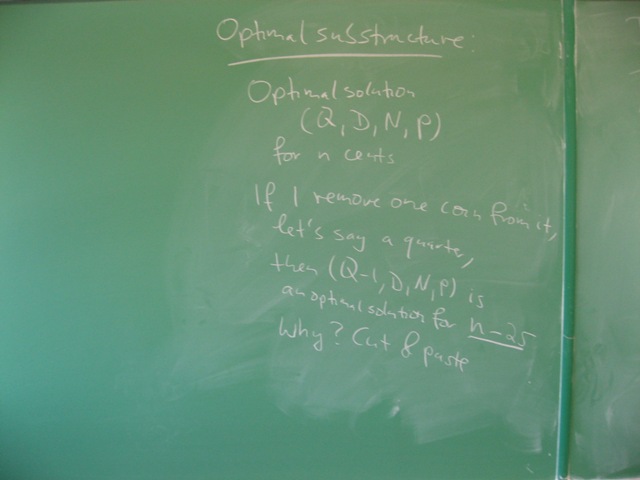 Optimal substructure:
Optimal solution
(Q, D, N, P)
for n cents
If I remove one coin from it,
let's say a quarter,
then (Q-1, D, N, P) is
an optimal solution for n-25
Why? Cut & paste